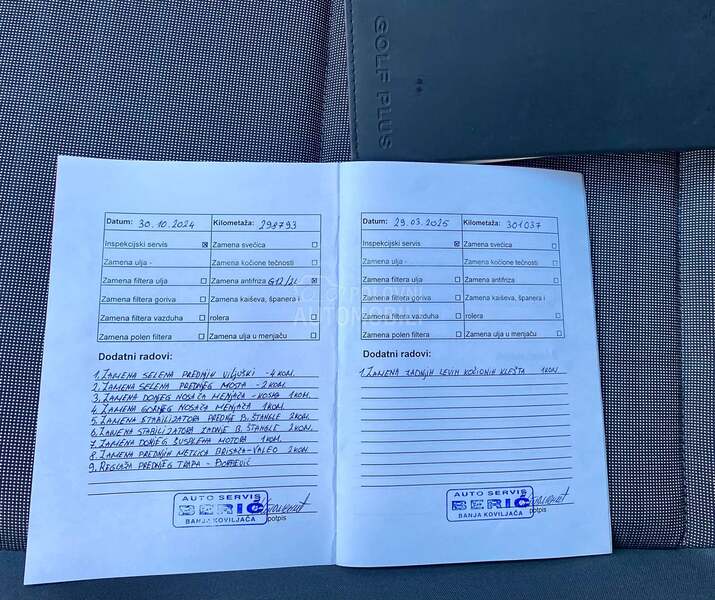 GOLF PLUS
Datum: 30.10.2024 Kilometaža: 298793
Inspekcijski servis ☒ Zamena svećica ☐
Zamena ulja - Zamena kočione tečnosti ☐
Zamena filtera ulja ☐ Zamena antifriza G12/2L ☒
Zamena filtera goriva ☐ Zamena kaiševa, španera i
Zamena filtera vazduha ☐ rolera ☐
Zamena polen filtera ☐ Zamena ulja u menjaču ☐
Dodatni radovi:
1. ZAMENA SELENA PREDNJIH VILJUŠKI - 4 KOM.
2. ZAMENA SELENA PREDNJEG MOSTA - 2 KOM.
3. ZAMENA DONJEG NOSAČA MENJAČA - KOSKA 1 KOM.
4. ZAMENA GORNJEG NOSAČA MENJAČA 1 KOM.
5. ZAMENA STABILIZATORA PREDNJE B. ŠTANGLE 2 KOM.
6. ZAMENA STABILIZATORA ZADNJE B. ŠTANGLE 2 KOM.
7. ZAMENA DONJEG ŠUSPLEHA MOTORA 1 KOM.
8. ZAMENA PREDNJIH METLICA BRISAČA - VALEO 2 KOM.
9. REGLAŽA PREDNJEG TRAPA -
AUTO SERVIS
BERIĆ
BANJA KOVILJAČA
potpis
Datum: 29.03.2025 Kilometaža: 301037
Inspekcijski servis ☒ Zamena svećica ☐
Zamena ulja - Zamena kočione tečnosti ☐
Zamena filtera ulja ☐ Zamena antifriza ☐
Zamena filtera goriva ☐ Zamena kaiševa, španera i
Zamena filtera vazduha ☐ rolera ☐
Zamena polen filtera ☐ Zamena ulja u menjaču ☐
Dodatni radovi:
1. ZAMENA ZADNJIH LEVIH KOČIONIH KLEŠTA 1 KOM.
AUTO SERVIS
BERIĆ
BANJA KOVILJAČA
potpis